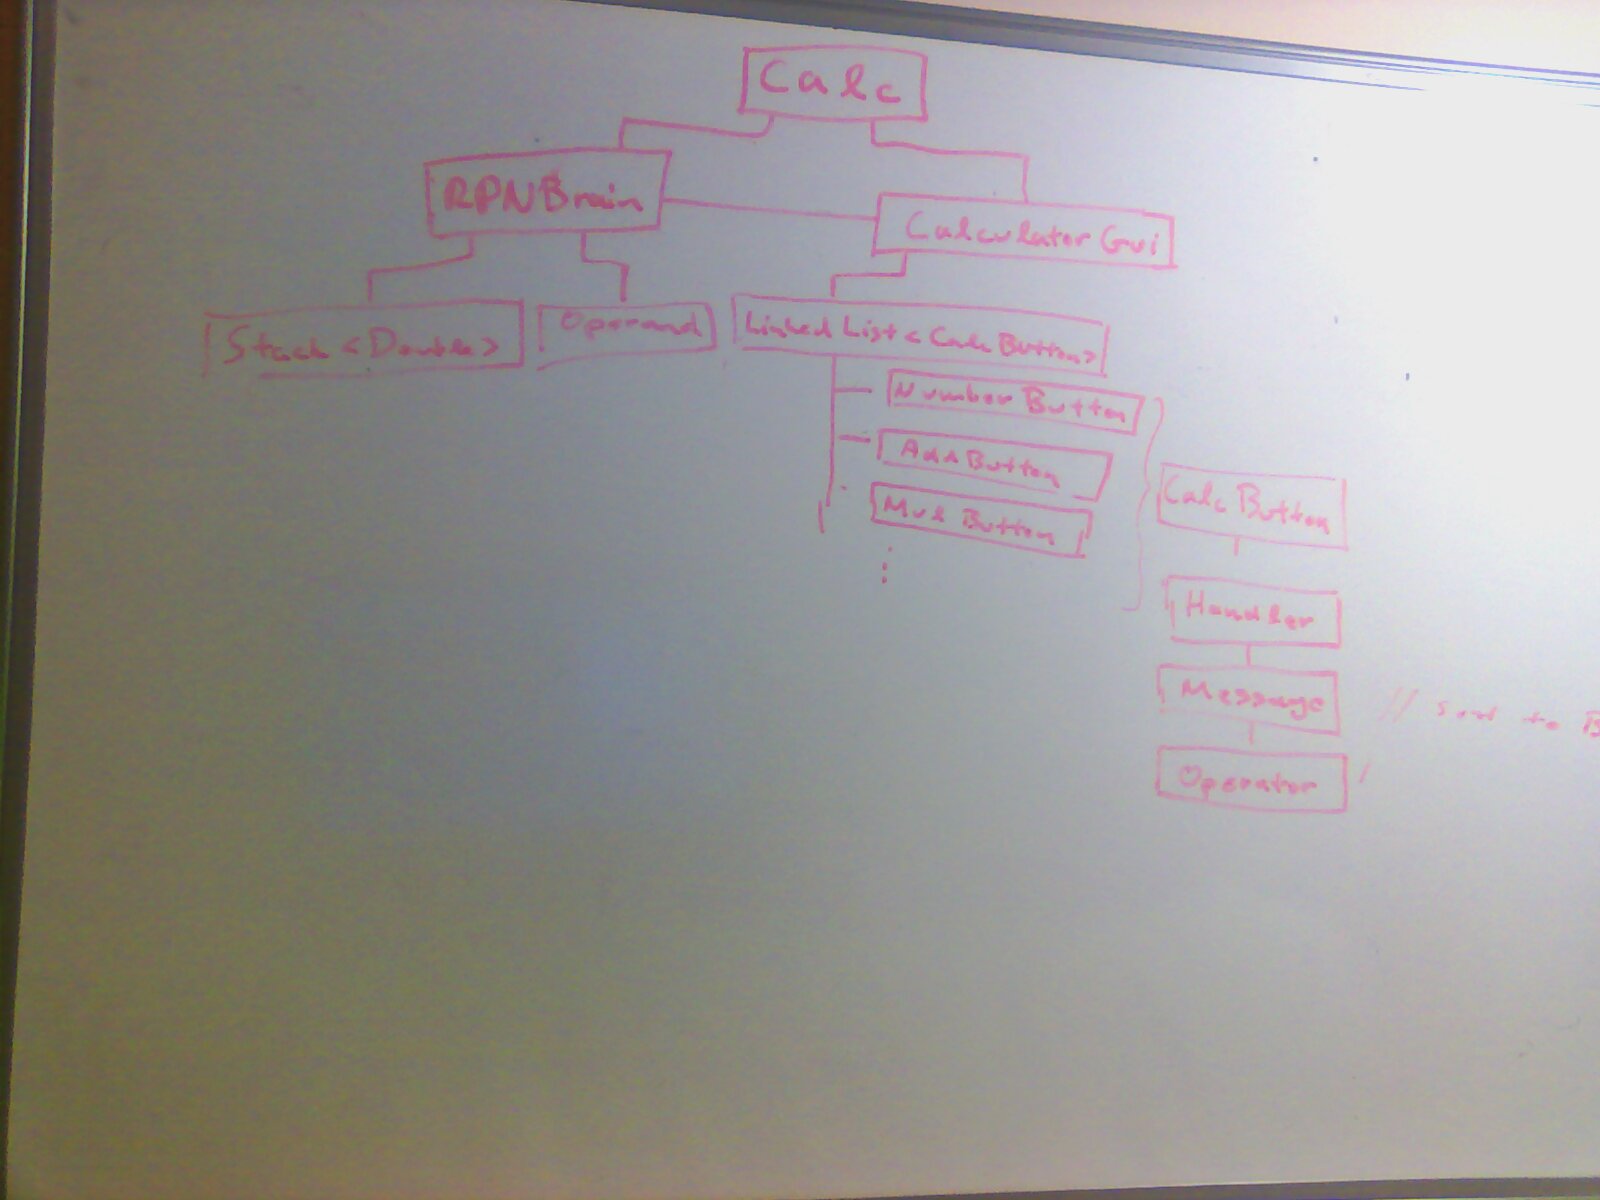 Calc
RPNBrain
CalculatorGui
Stack <Double>
Operand
Linked List < Calc Button>
Number Button
Add Button
Mul Button
⋮
Calc Button
Handler
Message
// sent to B
Operator